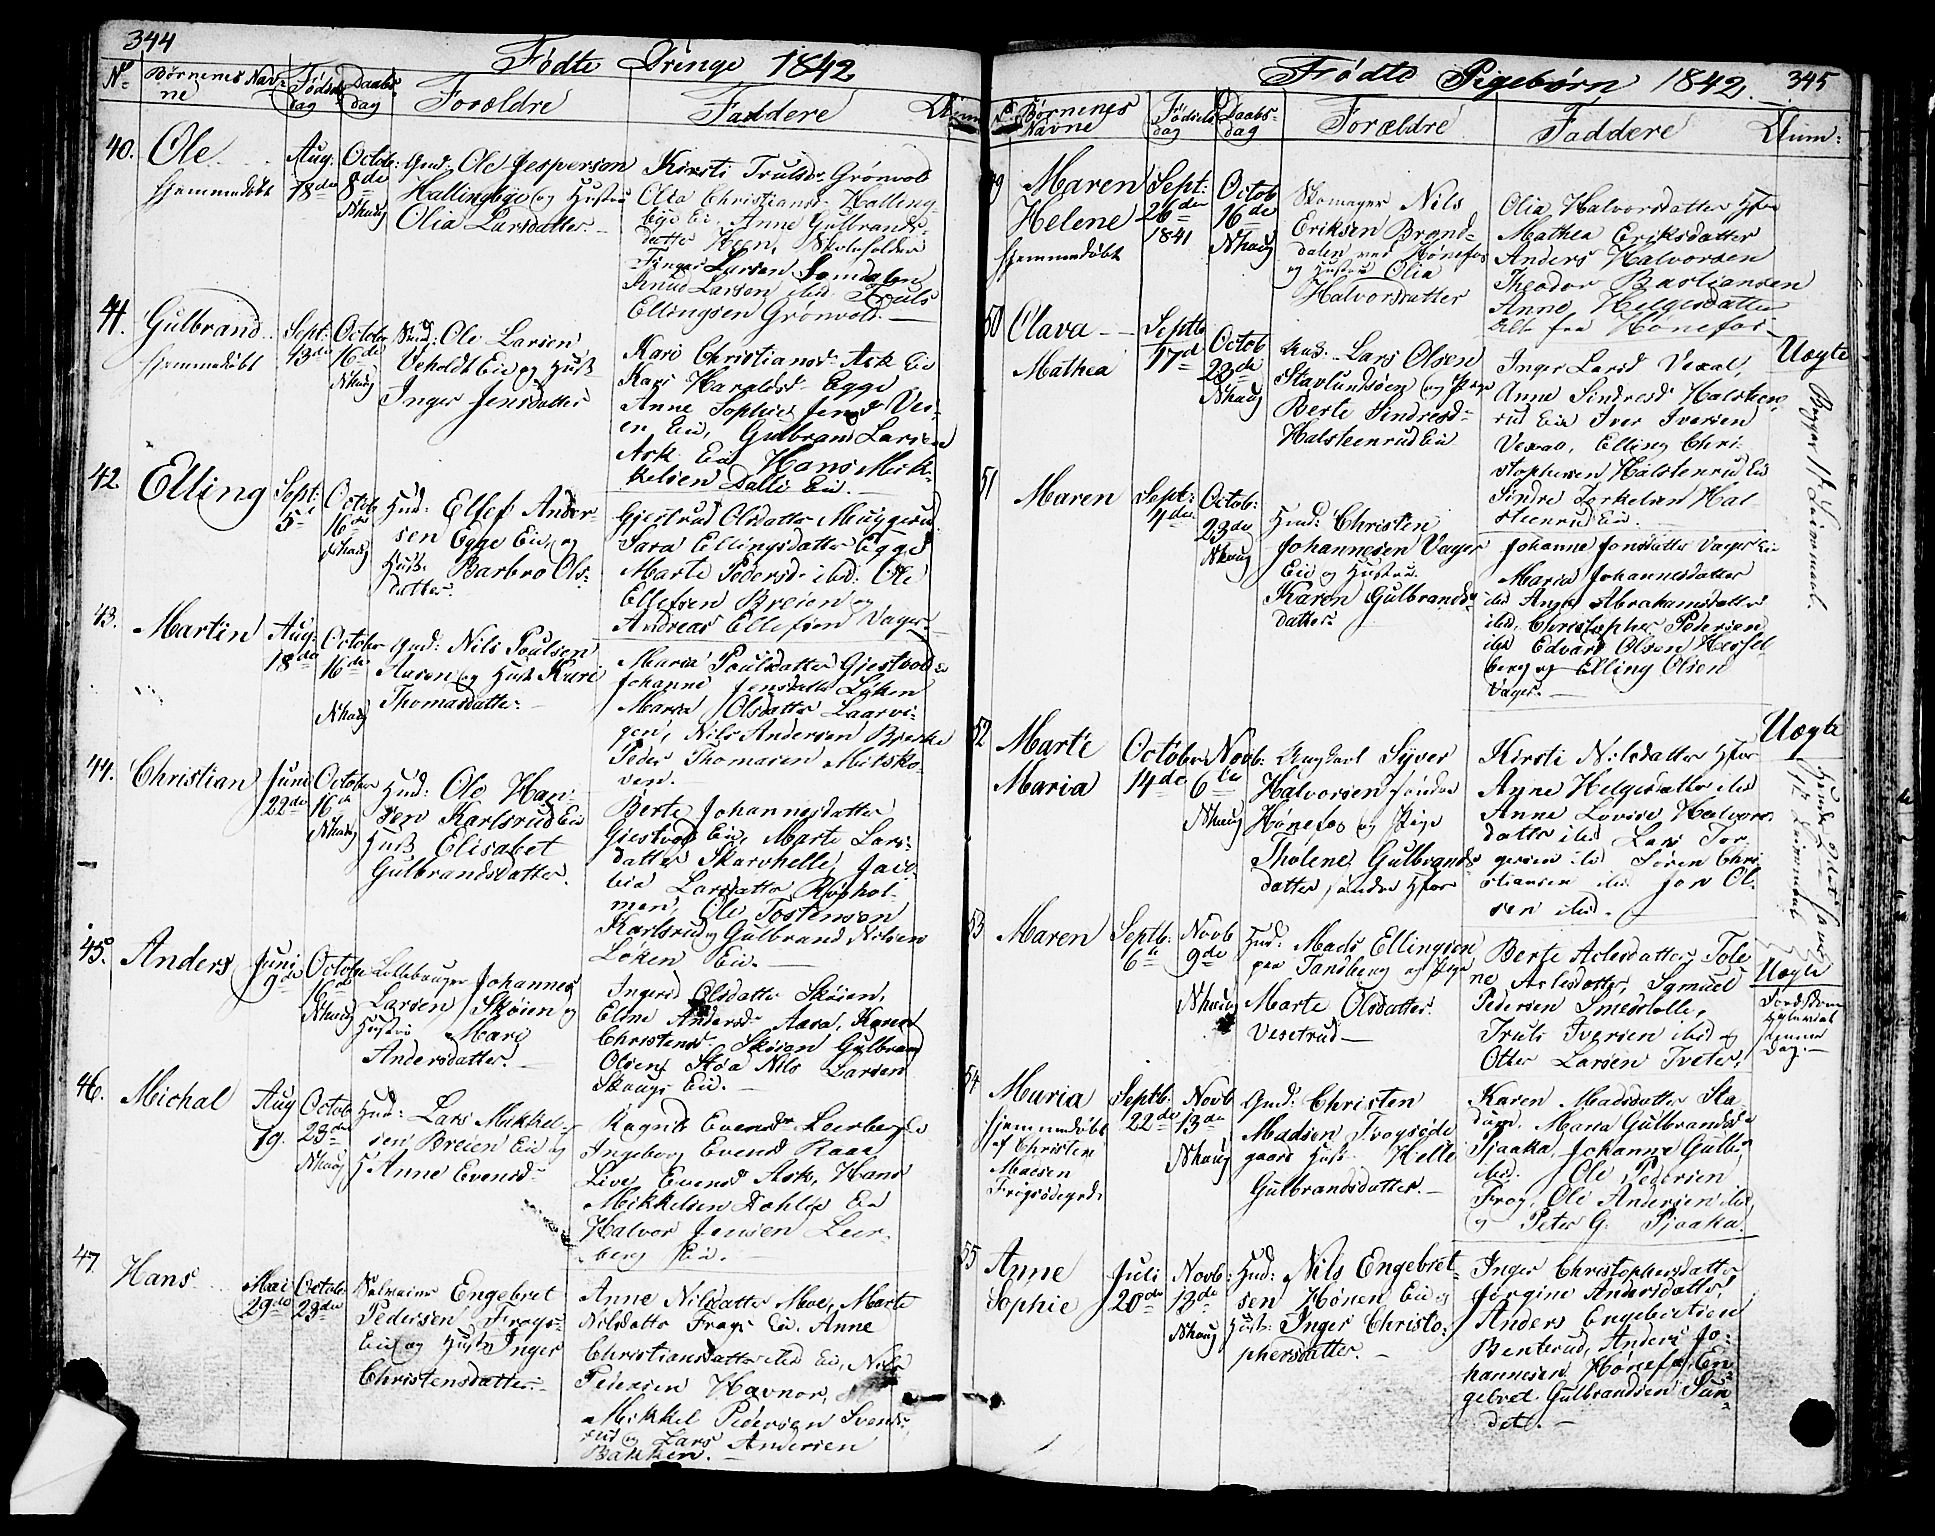 344
Fødte Drenge 1842
No
Børnenes Nav-
ne
Fødsels
dag
Daabs
dag
Forældre
Faddere
40. Ole
hjemmedøbt
Aug:
18de
Octob:
8de
Nhaug
Gmd: Ole Jespersen
Hallingbye og Hustru
Olia Larsdatter
Kirsti Trulsd: Grønvold
Olia Christiansd: Halling-
bye Eie, Anne Gulbrands-
datter Heen, Skoleholder
Larsen
Knud Larsen ibid: Truls
Ellingsen Grønvold.
41. Gulbrand
hjemmedøbt
Sept:
13de
Octobr
16de
Nhaug
Ole Larsen
Veholdt Eie og Hust
Inger Jensdatter
Kari Christiansd: Ask Eie
Kari Haraldsd: Egge
Anne Sophie Jensd Ve-
en Eie, Gulbrand Larsen
Ask Eie Hans Mik-
kelsen Dalli Eie.
42 Elling
Sept:
5
Octob
16de
Nhaug
Hmd: Ellef Ander-
sen Egge Eie, og
Hust: Barbro Ols-
datter.
Gjertrud Olsdatter Muggerud
Sara Ellingsdatter Egge
Marte Pedersd: ibid: Ole
Ellefsen Breien og
Andreas Ellefsen Vager
43. Martin
Aug:
18de
Octobr
16de
Nhaug
Gmd: Nils Poulsen
Aasen og Hust Kari
Thomasdatter
Maria Poulsdatter Gjestvold
Johanne Jensdatter Løken
Maria Olsdatter Laarvi-
gen, Nils Andersen
Peder Thomasen
44. Christian
Juni
22de
Octobr
16de
Nhaug
Hmd: Ole Han-
sen Karlsrud Eie
Hust Elisabet
Gulbrandsdatter
Berte Johannesdatter
Gjestvold Eie, Marte Lars-
datter Skarvhelle, Jaco-
bia Larsdatter
Ole Tostensen
Karlsrud og Gulbrand Nilsen
Løken Eie.
45. Anders
Juni
9de
Octobr
16de
Nhaug
Johannes
Larsen Skøien og
Hustru Mari
Andersdatter.
Ingerid Olsdatter Skøien,
Eline Andersd: Aasa, Karen
Christensd: Skøien Gulbrand
Olsen Skøa Nils Larsen
Skougs Eie.
46. Michal
Aug
19.
Octob
23de
Nhaug
Hmd: Lars Mikkel-
sen Breien Eie og
H Anne Evensd:
Ragnild Evensd: Leerberg
Ingeborg Evensd Raae
Live Evensd Ask, Hans
Mikkelsen Dahlie Eie
Halvor Jensen Leer-
berg Eie.
47. Hans
Mai
29de
Octob:
23de
Engebret
Pedersen Frogs-
Eie og Hust Inger
Christensdatter.
Anne Nilsdatter Moe, Marte
Nilsdatter Frogs Eie. Anne
Christiansdatter ibid Eie, Nils
Pedersen Havnor,
Mikkel Pedersen Svends-
rud og Lars Andersen
Bakken.
345
Fødte Pigebørn 1842.
Børnenes
Navne
Fødsels
dag
Daabs-
dag
Forældre
Faddere
Anm:
49 Maren
Helene
hjemmedøbt
Sept:
26de
1841
Octob
16de
Nhaug
Skomager Nils
Eriksen Brand-
dalen ved Hønefos
og Hustru Olia
Halvorsdatter
Olia Halvorsdatter Hfos
Mathea Eriksdatter
Anders Halvorsen
Theodor Bastiansen
Anne Helgesdatter
alle fra Hønefos
50 Olava
Mathea
Septb
17d
Octob
23de
Nhaug
Lars Olsen
Stavlundsøen og Pige
Berte Sindresd:
Halsteenrud Eie
Inger Larsd Vexal,
Anne Sindresd Halsteen-
rud Eie Iver Iversen
Vexal, Elling Chri-
stophersen Halsteenrud Eie
Sindre Torkelsen Hal-
steenrud Eie.
Uægte
Begges 1te Leiermaal.
51 Maren
Sept:
4de
Octob:
23de
Nhaug
Hmd: Christen
Johannesen Vager
Eie og Hustru
Karen Gulbrands-
datter
Johanne Jonsdatter Vager Eie
Maria Johannesdatter
ibid Anne Abrahamsdatter
ibid, Christopher Pedersen
ibid Edvard Olsen Hessel-
berg og Elling Olsen
Vager.
52 Marte
Maria
October
14de
Novb:
6te
Nhaug
Ungkarl Syver
Halvorsen søndre
Hønefos og Pige
Tholene Gulbrands-
datter søndre Hfos
Kirsti Nilsdatter Hfos
Anne Helgesdatter ibid
Anne Lovise Halvors-
datter ibid Lars Tor-
gersen ibid Søren Chri-
stiansen ibid. Jon Ol-
sen ibid.
Uægte
53 Maren
Septb:
6te
Novb
9de
Nhaug
Hmd: Mads Ellingsen
paa Tandberg og Pige
Marte Olsdatter
Vesetrud
Berte Aslesdatter, Tole-
ne Aslesdatter, Samuel
Pedersen Smestelle,
Truls Iversen ibid og
Otter Larsen Tveter.
Uægte
54 Maria
hjemmedøbt
af Christen
Septb:
22de
Novb
13de
Nhaug
Gmd: Christen
Madsen Frogsøde-
gaard Hust: Helle
Gulbrandsdatter.
Karen Madsdatter Sta-
dum, Maria Gulbrandsd:
Pjaaka, Johanne Gulb:
ibid. Ole Pedersen
Frog, Ole Andersen ibid,
og Peter G: Pjaaka.
55 Anne
Sophie
Juli
20de
Novb:
13de
Nhaug
Hmd: Nils Engebret-
sen Hønen Eie og
Hust: Inger Christo-
phersdatter.
Inger Christophersdatter
Jørgine Andersdatter
Anders Engebretsen
Benterud, Anders Jo-
hannesen Hønefos, En-
gebret Gulbrandsen Sun-
det.